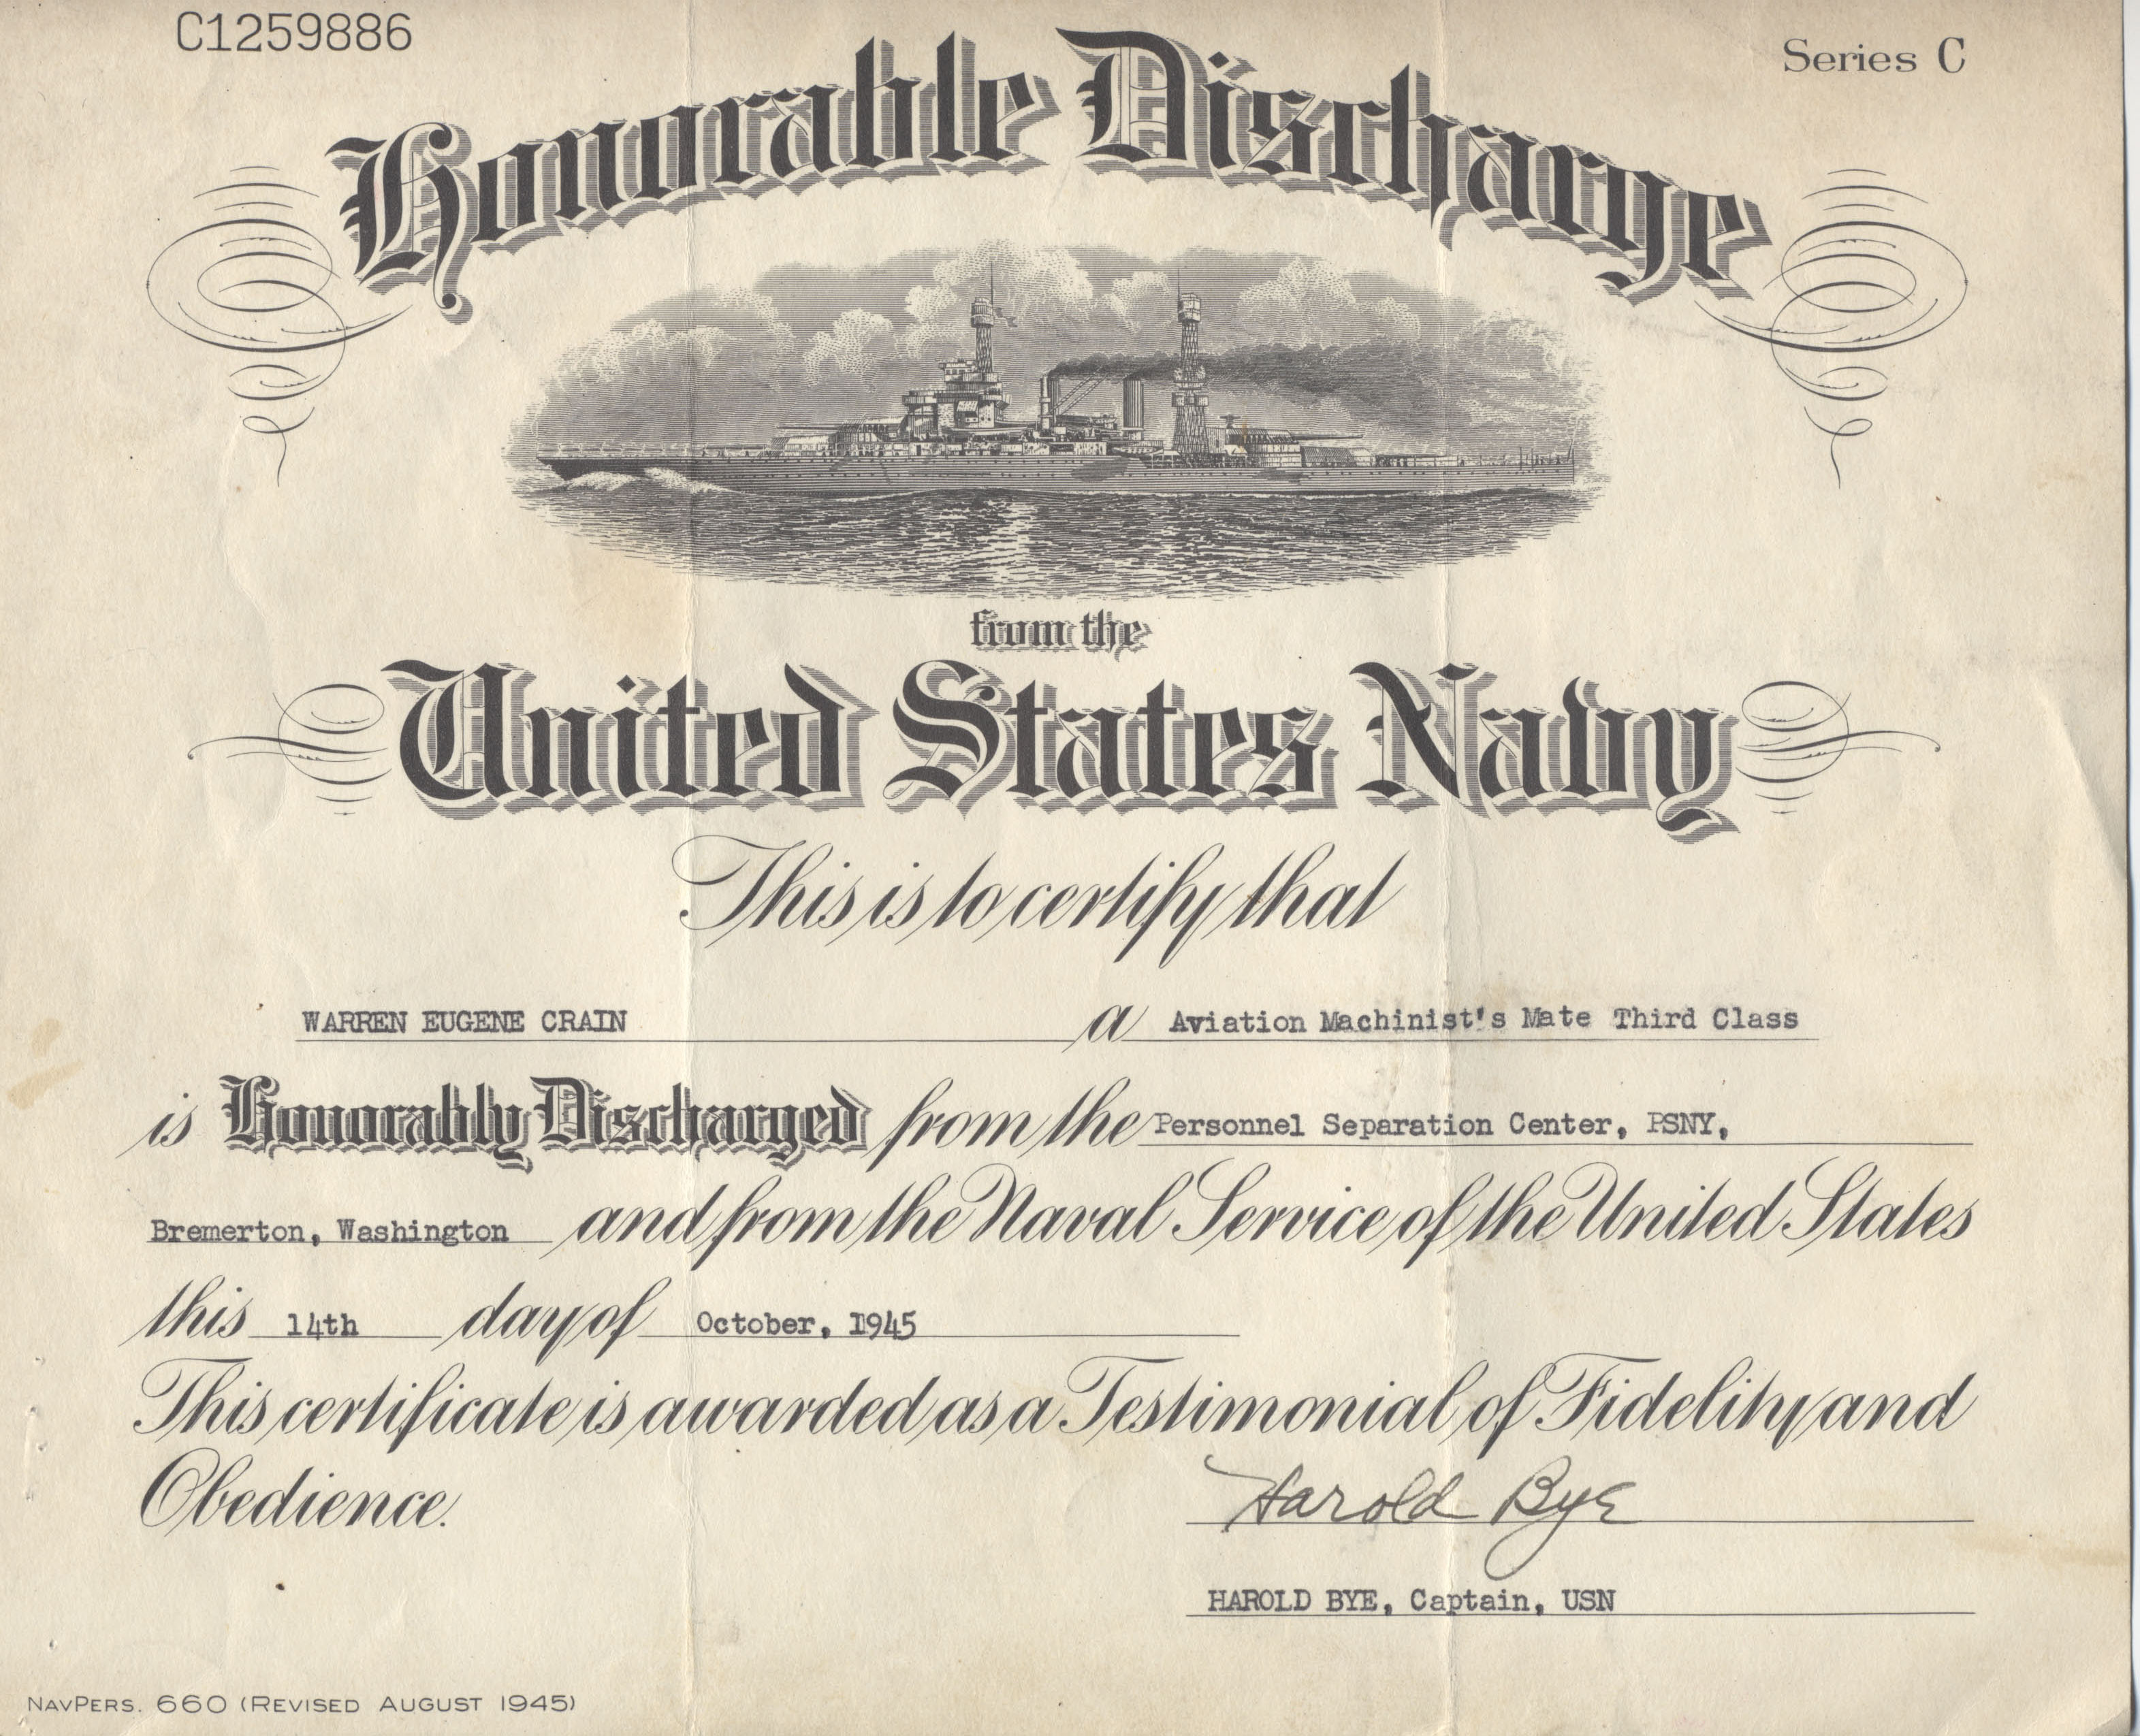 C1259886
Series C
Honorable Discharge
from the
United States Navy
This is to certify that
WARREN EUGENE CRAIN a Aviation Machinist's Mate Third Class
is Honorably Discharged from the Personnel Separation Center, PSNY,
Bremerton, Washington and from the Naval Service of the United States
this 14th day of October, 1945
This certificate is awarded as a Testimonial of Fidelity and
Obedience.
Harold Bye
HAROLD BYE, Captain, USN
NAVPERS. 660 (REVISED AUGUST 1945)